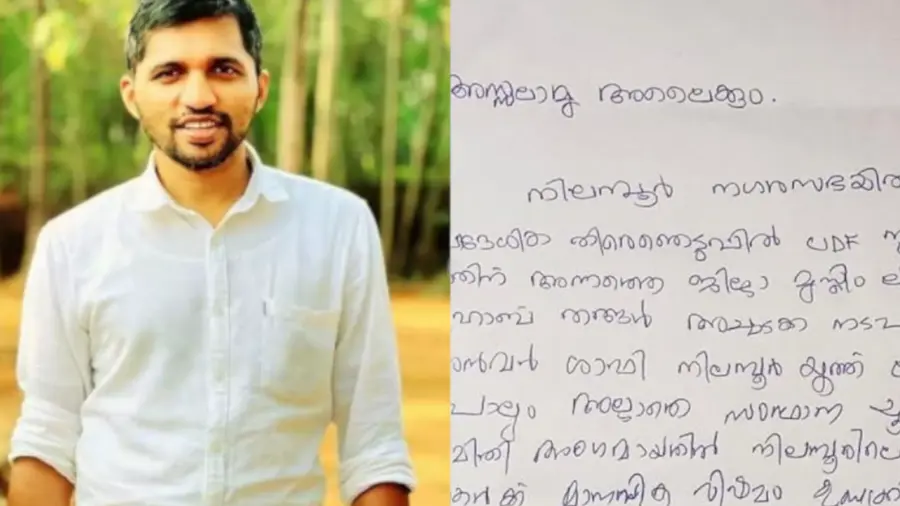 അസ്സലാമു അലൈക്കും.
നിലമ്പൂർ നഗരസഭയിൽ
തിരഞ്ഞെടുപ്പിൽ UDF
അന്നത്തെ ജില്ലാ മുസ്ലിം ല
ഹാബ് തങ്ങൾ അച്ചടക്ക നടപ
അൻവർ ശാഫി നിലമ്പൂർ യൂത്ത്
പോലും അല്ലാതെ സംസ്ഥാന
മിതി അംഗമായതിൽ നിലമ്പൂരിലെ
മാനസിക വിഷമം